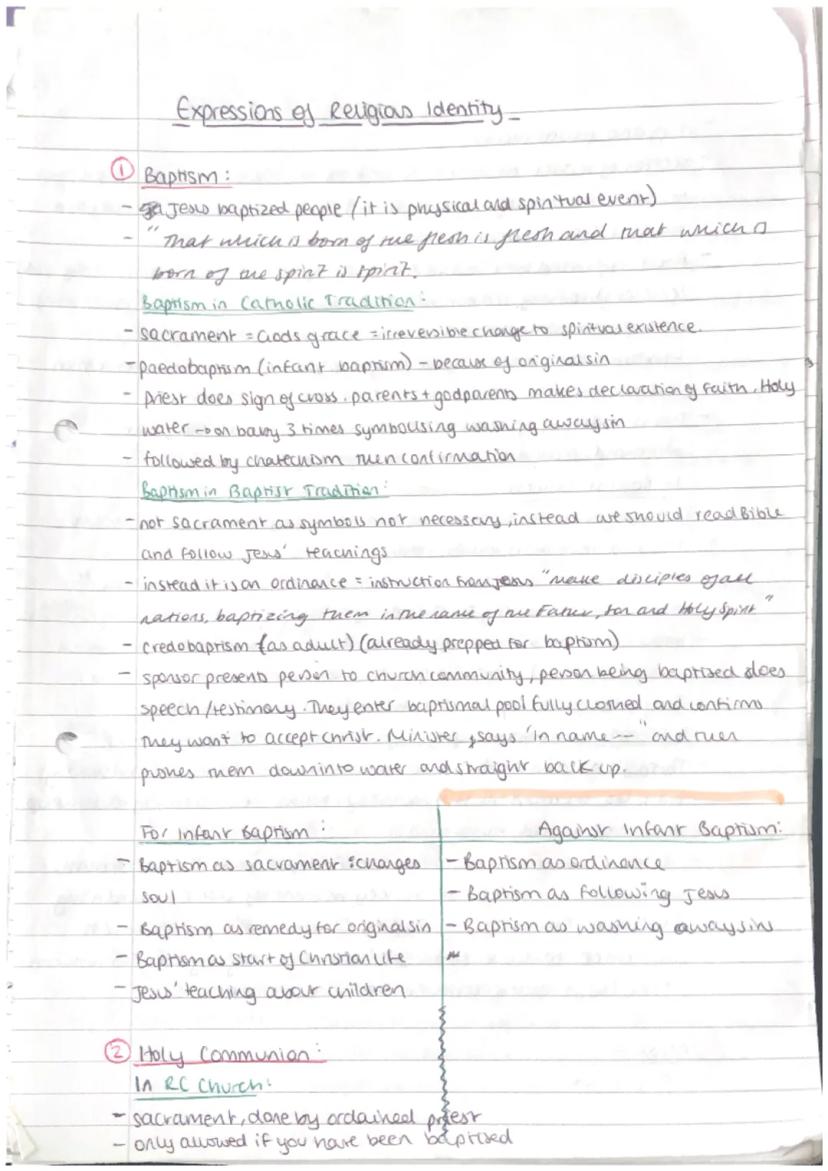 Expressions of Religious Identity
① Baptism:
- Jesus baptized people (it is physical and spiritual event)
- "That which is born of the flesh is flesh and that which is
born of the spirit is spirit.
Baptism in Catholic Tradition:
- sacrament = Gods grace = irreversible change to spiritual existence.
- paedobaptism (infant baptism) - because of original sin
- Priest does sign of cross. parents + godparents makes declaration of faith. Holy
water → on baby 3 times symbolising washing away sin
- followed by chatechism then confirmation
Baptism in Baptist Tradition:
- not sacrament as symbols not necessary, instead we should read Bible
and follow Jesus' teachings
- instead it is an ordinance = instruction from Jesus "make disciples of all
nations, baptizing them in the name of the Father, Son and Holy Spirit"
- credobaptism (as adult) (already prepped for baptism)
- sponsor presents person to church community, person being baptised does
speech/testimony. They enter baptismal pool fully clothed and confirms
they want to accept christ. Minister says 'in name --" and then
pushes them down into water and straight back up.
For Infant Baptism:
- Baptism as sacrament : changes
soul
- Baptism as remedy for original sin
- Baptism as start of Christian life
- Jesus' teaching about children
Against Infant Baptism:
- Baptism as ordinance
- Baptism as following Jesus
- Baptism as washing away sins
② Holy Communion:
In RC Church:
- sacrament, done by ordained priest
- only allowed if you have been baptised